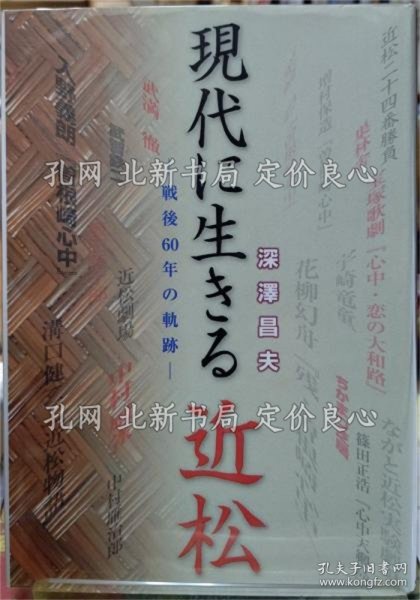 現代に生きる
近松
戦後60年の軌跡―
深澤昌夫
近松二十四番勝負
宝塚歌劇「心中・恋の大和路」
宇崎竜童
花柳幻舟
ながと近松実験劇場
篠田正浩「心中天網島
増村保造
武満徹
近松劇場
中村鴈治郎
溝口健二「近松物語」
孔网 北新书局 定价良心
孔网 北新书局 定价良心
孔网 北新书局 定价良心
孔夫子旧书网
www.kongfz.com